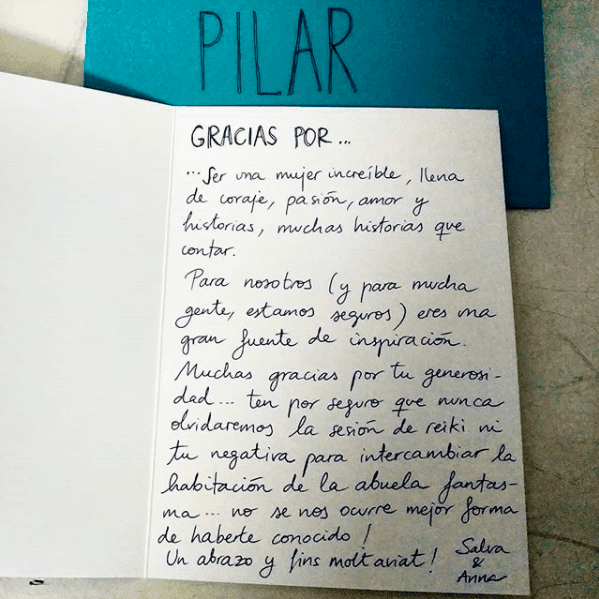 PILAR
GRACIAS POR...
...Ser una mujer increíble, llena
de coraje, pasión, amor y
historias, muchas historias que
contar.
Para nosotros (y para mucha
gente, estamos seguros) eres una
gran fuente de inspiración.
Muchas gracias por tu generosi-
dad... ten por seguro que nunca
olvidaremos la sesión de reiki ni
tu negativa para intercambiar la
habitación de la abuela fantas-
ma... no se nos ocurre mejor forma
de haberte conocido!
Un abrazo y fins molt aviat!
Salva
&
Anna